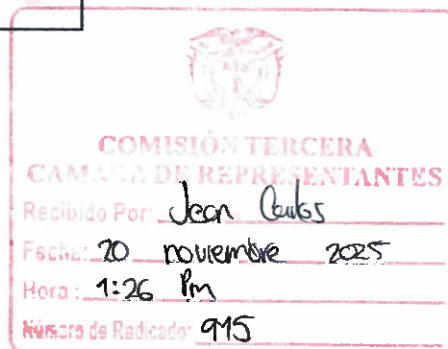 COMISIÓN TERCERA
CAMARA DE REPRESENTANTES
Recibido Por: Jean Carlos
Fecha: 20 noviembre 2025
Hora: 1:26 Pm
Número de Radicado: 915